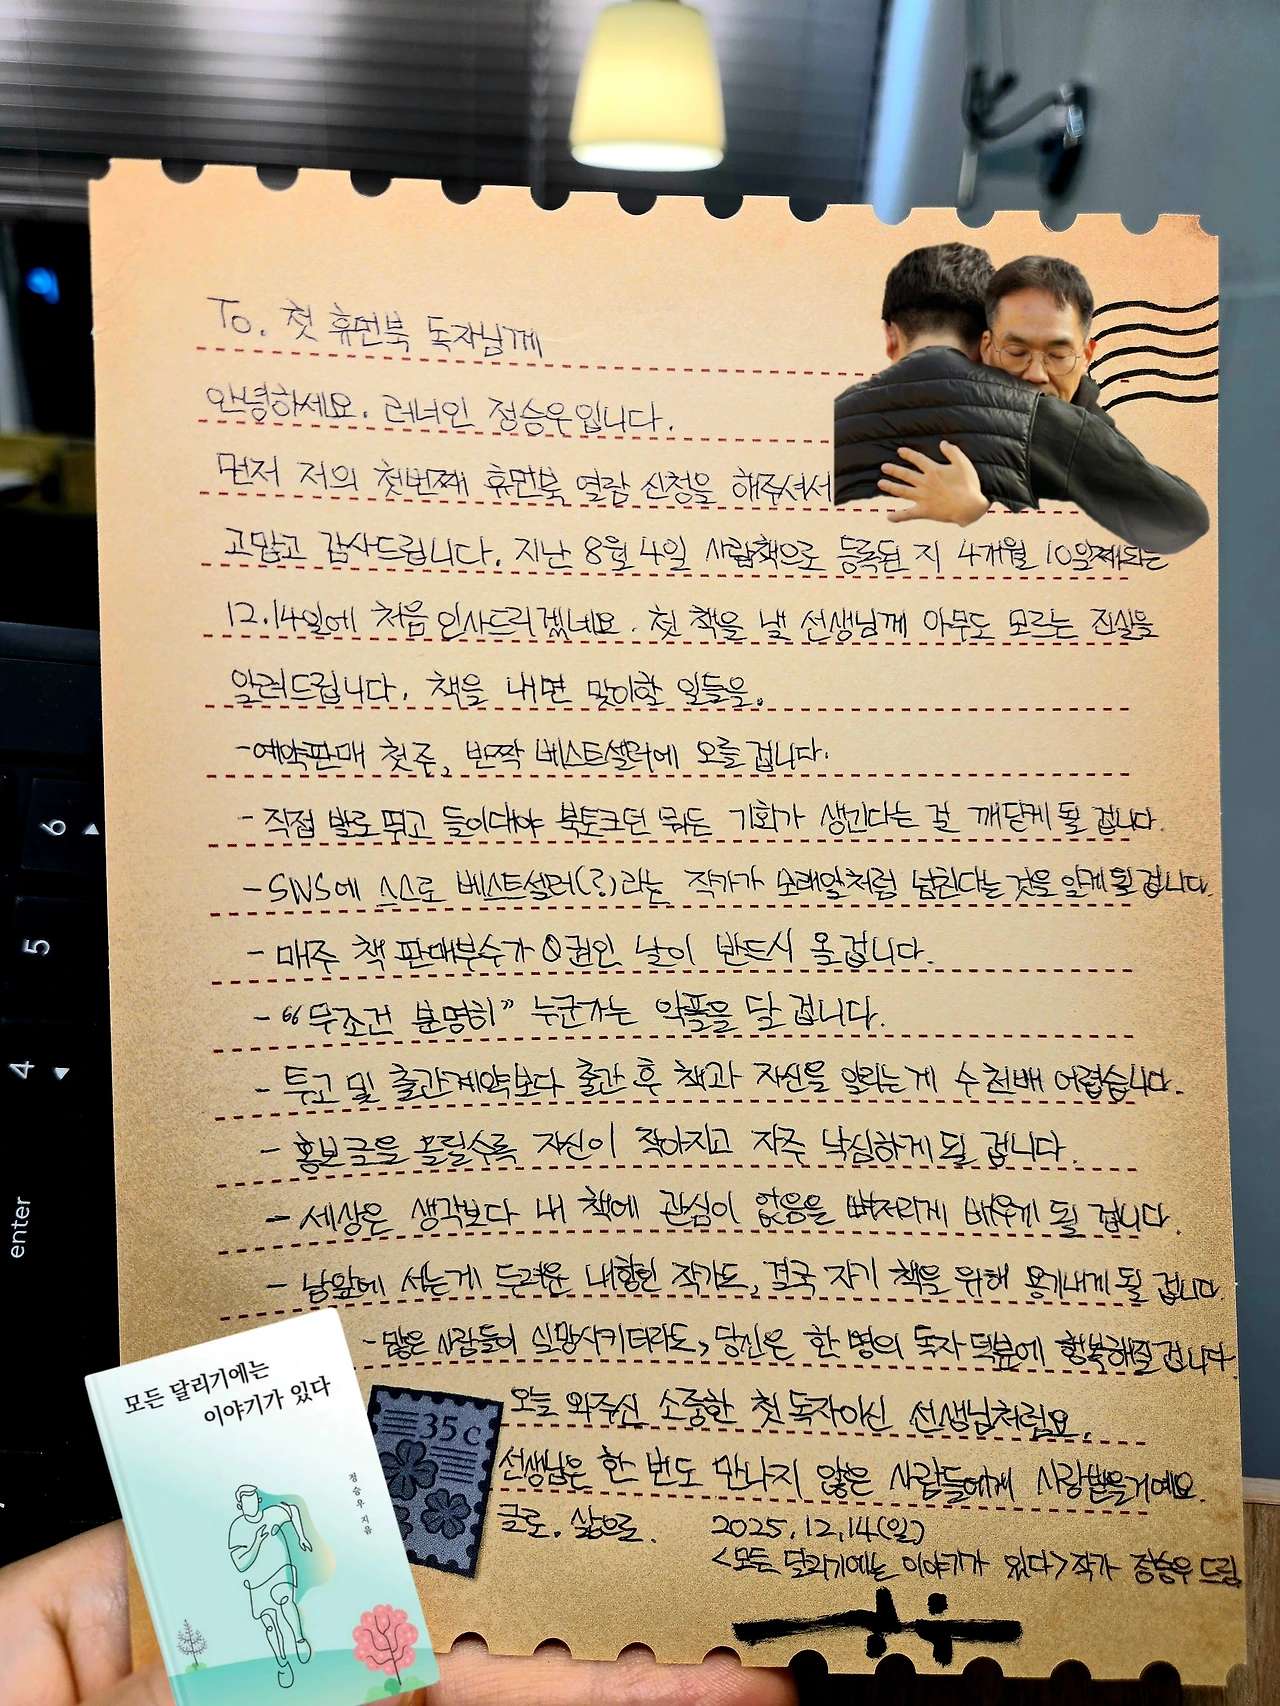 To. 첫 휴먼북 독자님께
안녕하세요. 러너인 정승우입니다.
먼저 저의 첫번째 휴먼북 열람 신청을 해주셔서
고맙고 감사드립니다. 지난 8월 4일 사람책으로 등록된 지 4개월 10일째되는
12.14일에 처음 인사드리겠네요. 첫 책을 낼 선생님께 아무도 모르는 진실을
알려드립니다. 책을 내면 맞이할 일들을.
-예약판매 첫주, 반짝 베스트셀러에 오를 겁니다.
- 직접 발로 뛰고 들이대야 북토크던 뭐든 기회가 생긴다는 걸 깨닫게 될 겁니다.
- SNS에 스스로 베스트셀러(?)라는 작가가 모래알처럼 넘친다는 것을 알게 될 겁니다.
- 매주 책 판매부수가 0권인 날이 반드시 올 겁니다.
- "무조건 분명히" 누군가는 악플을 달 겁니다.
- 투고 및 출간계약보다 출간 후 책과 자신을 알리는게 수천배 어렵습니다.
- 홍보글을 올릴수록 자신이 작아지고 자주 낙심하게 될 겁니다.
- 세상은 생각보다 내 책에 관심이 없음을 뼈저리게 배우게 될 겁니다.
- 남앞에 서는게 두려운 내향인 작가도, 결국 자기 책을 위해 용기내게 될 겁니다.
- 많은 사람들이 실망시키더라도, 당신은 한 명의 독자 덕분에 행복해질 겁니다
오늘 와주신 소중한 첫 독자이신 선생님처럼요.
선생님은 한 번도 만나지 않은 사람들에게 사랑받을거예요.
글로. 삶으로.
2025. 12. 14(일)
<모든 달리기에는 이야기가 있다> 작가 정승우 드림
모든 달리기에는
이야기가 있다
정승우 지음
35c
6
5
4
enter